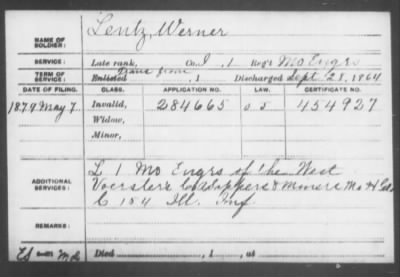 NAME OF SOLDIER: Lentz, Werner
SERVICE: Late rank, Co. I, 1 Reg't Mo Engrs
TERM OF SERVICE: Enlisted , 1 Discharged Sept. 28, 1864
DATE OF FILING. CLASS. APPLICATION NO. LAW. CERTIFICATE NO.
1879 May 7. Invalid, 284665 454927
Widow,
Minor,
L 1 Mo Engrs of the West
ADDITIONAL SERVICES: Voerster's Co Sappers & Miners Mo
154 Ill. Inf.
REMARKS:
Died , 1 , at